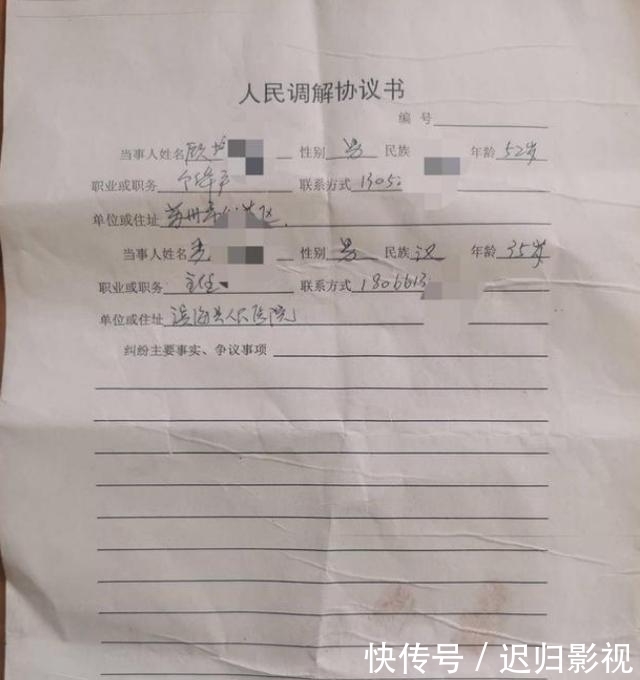 人民调解协议书
编 号
当事人姓名 性别 男 民族 年龄 52岁
职业或职务 个体户 联系方式 1305
单位或住址 苏州市 区
当事人姓名 性别 男 民族 汉 年龄 35岁
职业或职务 主任 联系方式 1806613
单位或住址 滨海县人民医院
纠纷主要事实、争议事项
快传号 / 迟归影视